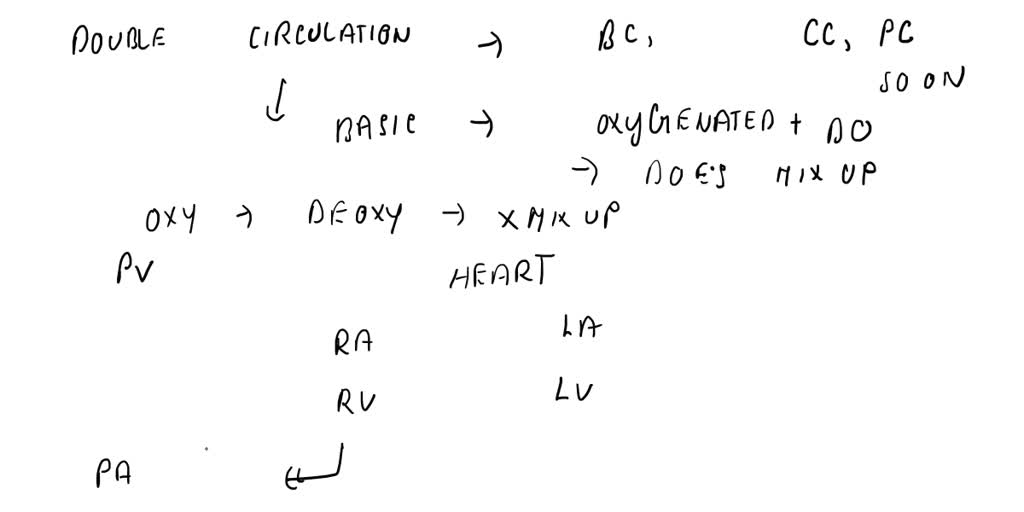 DOUBLE CIRCULATION → BC, CC, PC
SO ON
↓ BASIC → OXYGENATED + DO
→ DOES MIX UP
OXY → DEOXY → X MIX UP
PV HEART
RA LA
RV LV
PA